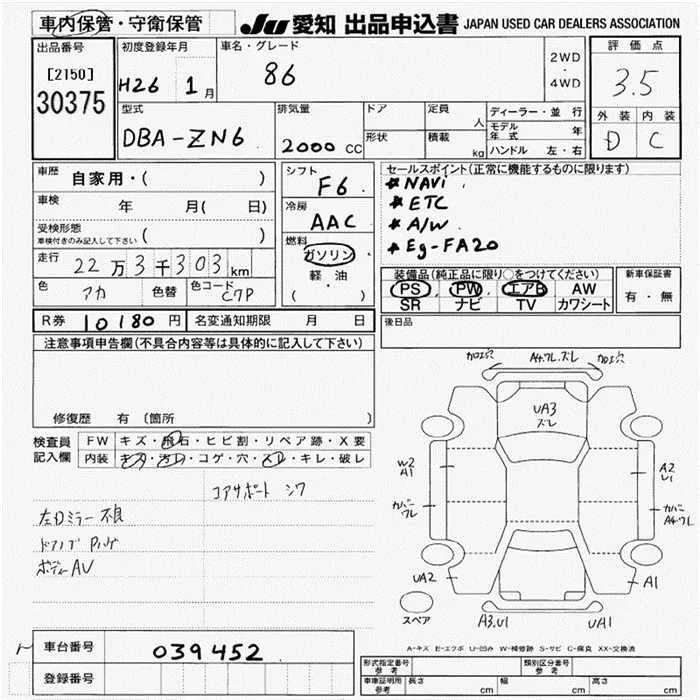 車内保管・守衛保管 JU 愛知 出品申込書 JAPAN USED CAR DEALERS ASSOCIATION
出品番号 初度登録年月 車名・グレード 評価点
[2150] H26 1月 86 2WD・4WD 3.5
30375
型式 排気量 ドア 定員 人 ディーラー・並行 外装 内装
DBA-ZN6 2000 CC 形状 積載 kg モデル年式 年 D C
ハンドル 左・右
車歴 自家用・( ) シフト F6 セールスポイント(正常に機能するものに限ります)
車検 年 月( 日) 冷房 AAC * NAVi
* ETC
受検形態 車検付きのみ記入して下さい ( ) 燃料 ガソリン * A/W
* Eg-FA20
走行 22万3千303km 軽・油 装備品(純正品に限り○をつけてください) 新車保証書
色 アカ 色替 色コード C7P ( ) PS PW エアB AW 有・無
SR ナビ TV カワシート
R券 10180円 名変通知期限 月 日 後日品
注意事項申告欄(不具合内容等は具体的に記入して下さい)
修復歴 有 (箇所 )
検査員記入欄 FW キズ・飛石・ヒビ割・リペア跡・X要
内装 キズ・汚レ・コゲ・穴・スレ・キレ・破レ
コアサポート シワ
左Dミラー不良
ドアノブ
ボディーAV
加工穴 A4.ワレ.ズレ 加工穴
UA3
ズレ
W2
A1
A2
U1
カバーワレ
カバーA4.ワレ
UA2
A1
スペア
A3.U1
UA1
A-キズ E-エクボ U-凹み W-補修跡 S-サビ C-腐食 XX-交換済
車台番号 039452
登録番号
形式指定番号 参考 類別区分番号 参考
車庫証明用 参考 長さ cm 幅 cm 高さ cm